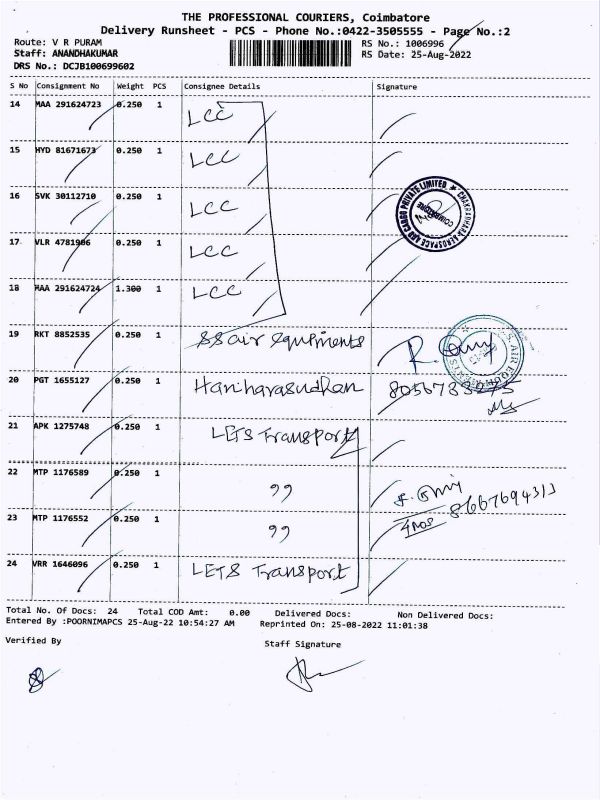 THE PROFESSIONAL COURIERS, Coimbatore
Delivery Runsheet - PCS - Phone No.:0422-3505555 - Page No.:2
Route: V R PURAM
RS No.: 1006996
Staff: ANANDHAKUMAR
RS Date: 25-Aug-2022
DRS No.: DCJB100699602
S No Consignment No Weight PCS Consignee Details Signature
14 MAA 291624723 0.250 1 LCC
15 HYD 81671673 0.250 1 LCC
16 SVK 30112710 0.250 1 LCC
17 VLR 4781906 0.250 1 LCC
18 MAA 291624724 1.300 1 LCC
19 RKT 8852535 0.250 1 SS air equipments
20 PGT 1655127 0.250 1 Hariharasudhan
21 APK 1275748 0.250 1 LETS Transport
22 MTP 1176589 0.250 1 ,,
8667694313
23 MTP 1176552 0.250 1 ,,
24 VRR 1646096 0.250 1 LETS Transport
Total No. Of Docs: 24 Total COD Amt: 0.00 Delivered Docs: Non Delivered Docs:
Entered By :POORNIMAPCS 25-Aug-22 10:54:27 AM Reprinted On: 25-08-2022 11:01:38
Verified By Staff Signature